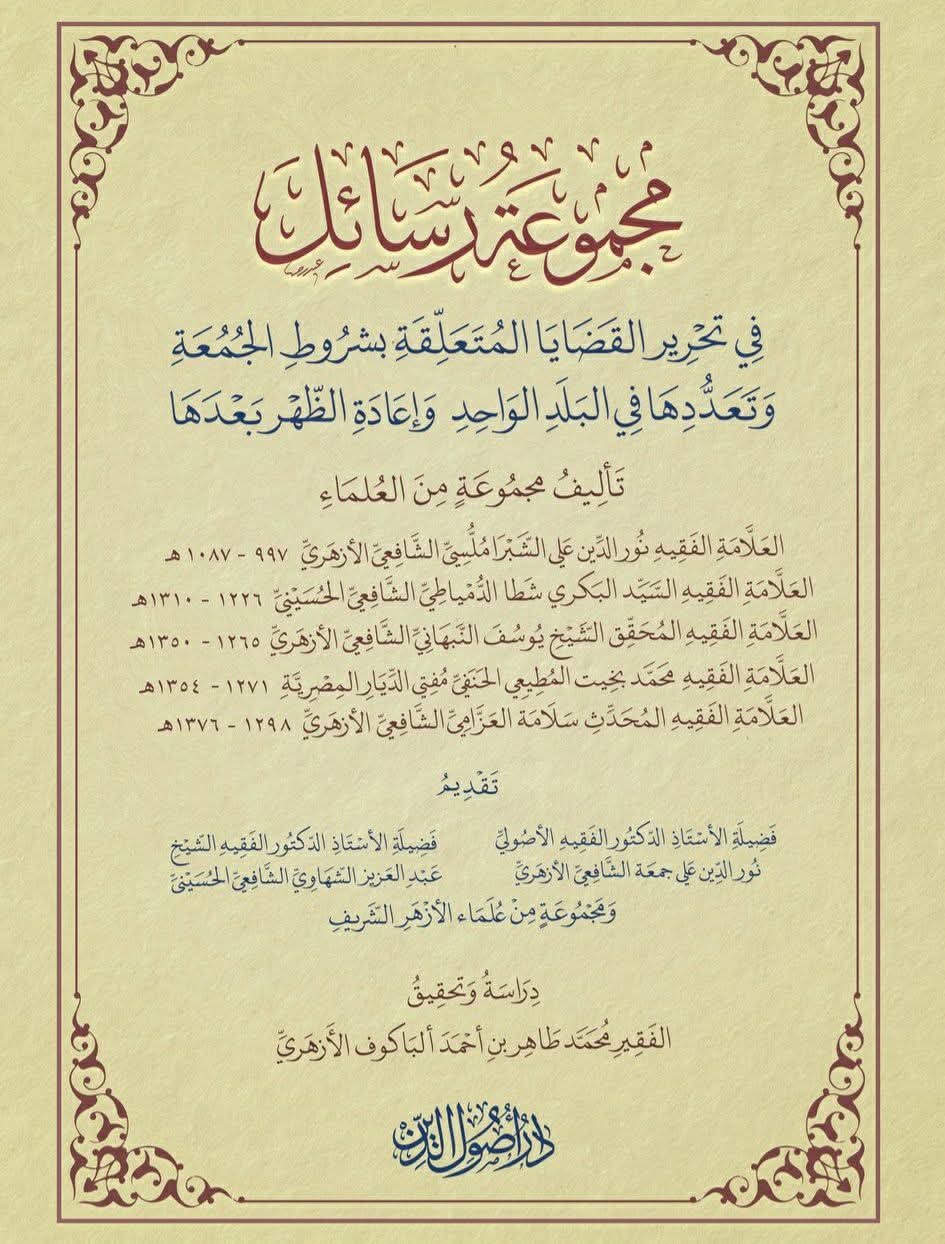 مجموعة رسائل
في تحرير القضايا المتعلقة بشروط الجمعة
وتعددها في البلد الواحد وإعادة الظهر بعدها
تأليف مجموعة من العلماء
العلامة الفقيه نور الدين علي الشبراملسي الشافعي الأزهري ٩٩٧ - ١٠٨٧هـ
العلامة الفقيه السيد البكري شطا الدمياطي الشافعي الحسيني ١٢٢٦ - ١٣١٠هـ
العلامة الفقيه المحقق الشيخ يوسف النبهاني الشافعي الأزهري ١٢٦٥ - ١٣٥٠هـ
العلامة الفقيه محمد بخيت المطيعي الحنفي مفتي الديار المصرية ١٢٧١ - ١٣٥٤هـ
العلامة الفقيه المحدث سلامة العزامي الشافعي الأزهري ١٢٩٨ - ١٣٧٦هـ
تقديم
فضيلة الأستاذ الدكتور الفقيه الأصولي
نور الدين علي جمعة الشافعي الأزهري
فضيلة الأستاذ الدكتور الفقيه الشيخ
عبد العزيز الشهاوي الشافعي الحسيني
ومجموعة من علماء الأزهر الشريف
دراسة وتحقيق
الفقير محمد طاهر بن أحمد ألباكوف الأزهري
دار أصول الدين